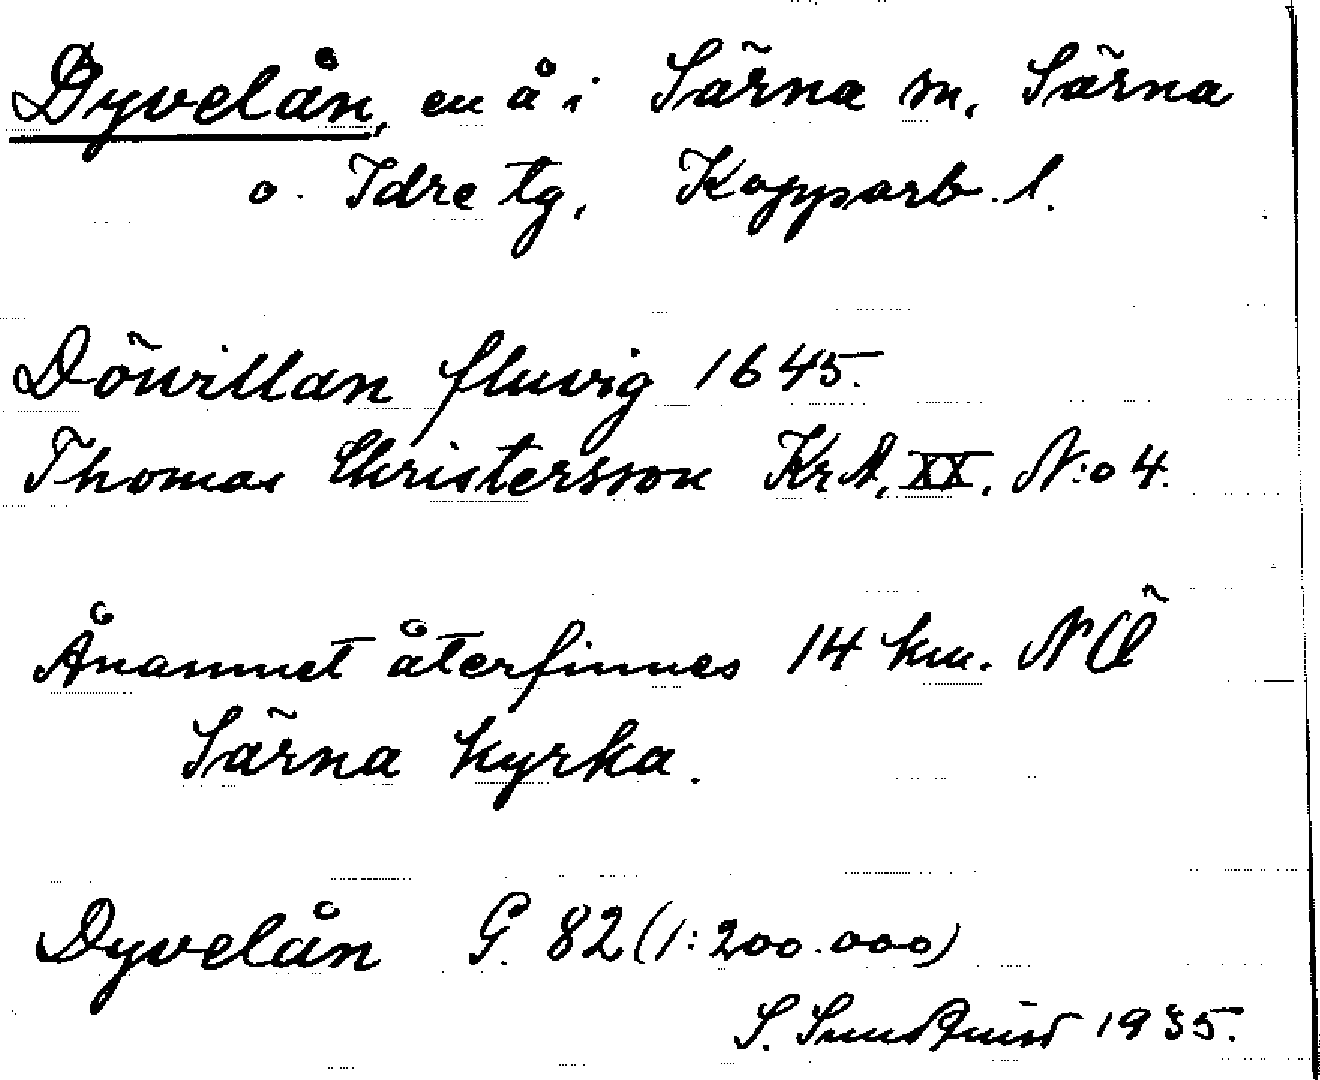 Dyvelån, en å i Särna sn, Särna
o. Idre tg, Kopparb. l.
Döwillan fluvig 1645.
Thomas Christersson KrA, XX, N:o 4.
Ånamnet återfinnes 14 km. NÖ
Särna kyrka.
Dyvelån G. 82 (1:200.000)
S. 1935.